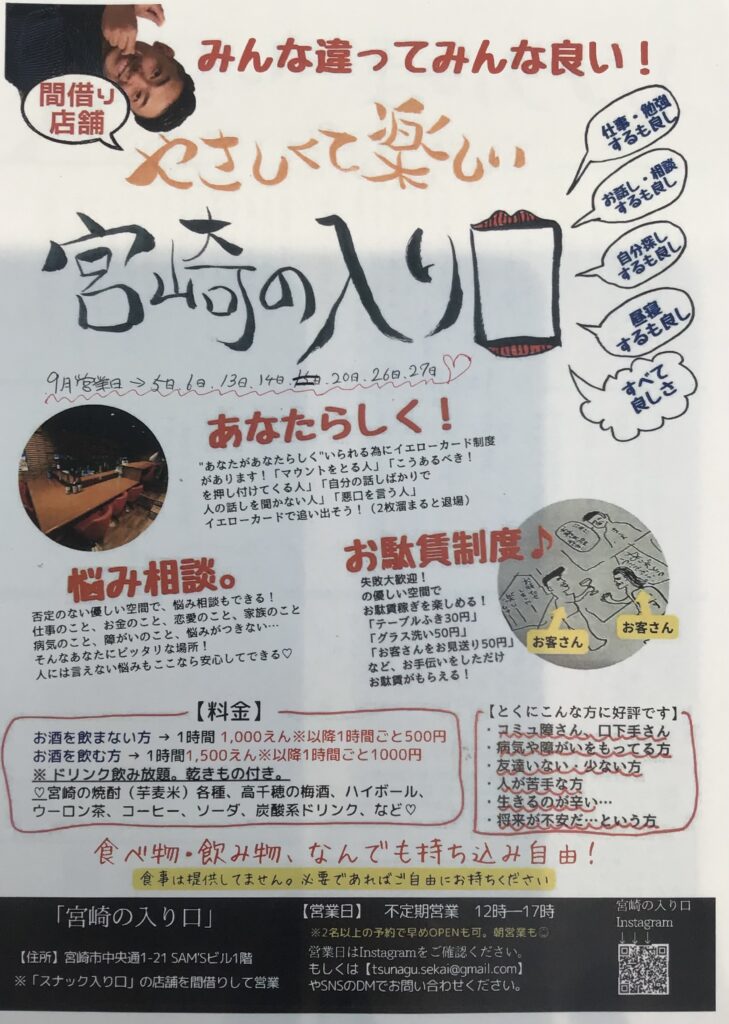 みんな違ってみんな良い！
間借り
店舗
やさしくて楽しい
宮崎の入り口
仕事・勉強
するも良し
お話し・相談
するも良し
自分探し
するも良し
昼寝
するも良し
すべて
良しさ
9月営業日→5日.6日.13日.14日.15日.20日.26日.27日♡
あなたらしく！
"あなたがあなたらしく"いられる為にイエローカード制度
があります！「マウントをとる人」「こうあるべき！
を押し付けてくる人」「自分の話しばかりで
人の話しを聞かない人」「悪口を言う人」
イエローカードで追い出そう！（2枚溜まると退場）
お駄賃制度♪
失敗大歓迎！
の優しい空間で
お駄賃稼ぎを楽しめる！
「テーブルふき30円」
「グラス洗い50円」
「お客さんをお見送り50円」
など、お手伝いをしただけ
お駄賃がもらえる！
お客さん
お客さん
悩み相談。
否定のない優しい空間で、悩み相談もできる！
仕事のこと、お金のこと、恋愛のこと、家族のこと
病気のこと、障がいのこと、悩みがつきない…
そんなあなたにピッタリな場所！
人には言えない悩みもここなら安心してできる♡
【料金】
お酒を飲まない方 → 1時間 1,000えん※以降1時間ごと500円
お酒を飲む方 → 1時間1,500えん※以降1時間ごと1000円
※ ドリンク飲み放題。乾きもの付き。
♡宮崎の焼酎（芋麦米）各種、高千穂の梅酒、ハイボール、
ウーロン茶、コーヒー、ソーダ、炭酸系ドリンク、など♡
【とくにこんな方に好評です】
・コミュ障さん、口下手さん
・病気や障がいをもってる方
・友達いない・少ない方
・人が苦手な方
・生きるのが辛い…
・将来が不安だ…という方
食べ物・飲み物、なんでも持ち込み自由！
食事は提供してません。必要であればご自由にお持ちください
「宮崎の入り口」
【住所】宮崎市中央通1-21 SAM'Sビル1階
※「スナック入り口」の店舗を間借りして営業
【営業日】 不定期営業 12時―17時
※2名以上の予約で早めOPENも可。朝営業も☺
営業日はInstagramをご確認ください。
もしくは【tsunagu.sekai@gmail.com】
やSNSのDMでお問い合わせください。
宮崎の入り口
Instagram
↓↓↓